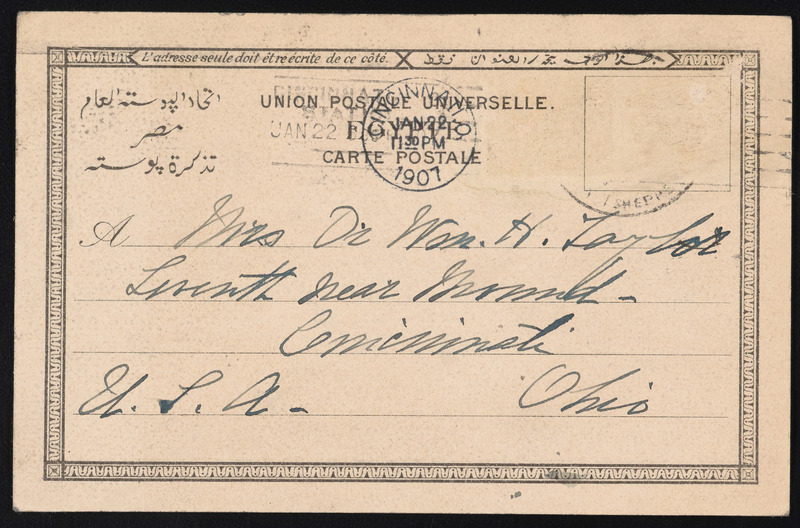 L'adresse seule doit être écrite de ce côté.
اتحاد البوسته العام
مصر
تذكرة بوسته
UNION POSTALE UNIVERSELLE.
EGYPTE
CARTE POSTALE
CINCINNATI
STA
JAN 22
CINCINNATI, O.
JAN 22
11 30 PM
1907
SHEPH
A Mrs Dr Wm. H. Taylor
Seventh near Mound -
Cincinnati
U. S. A - Ohio